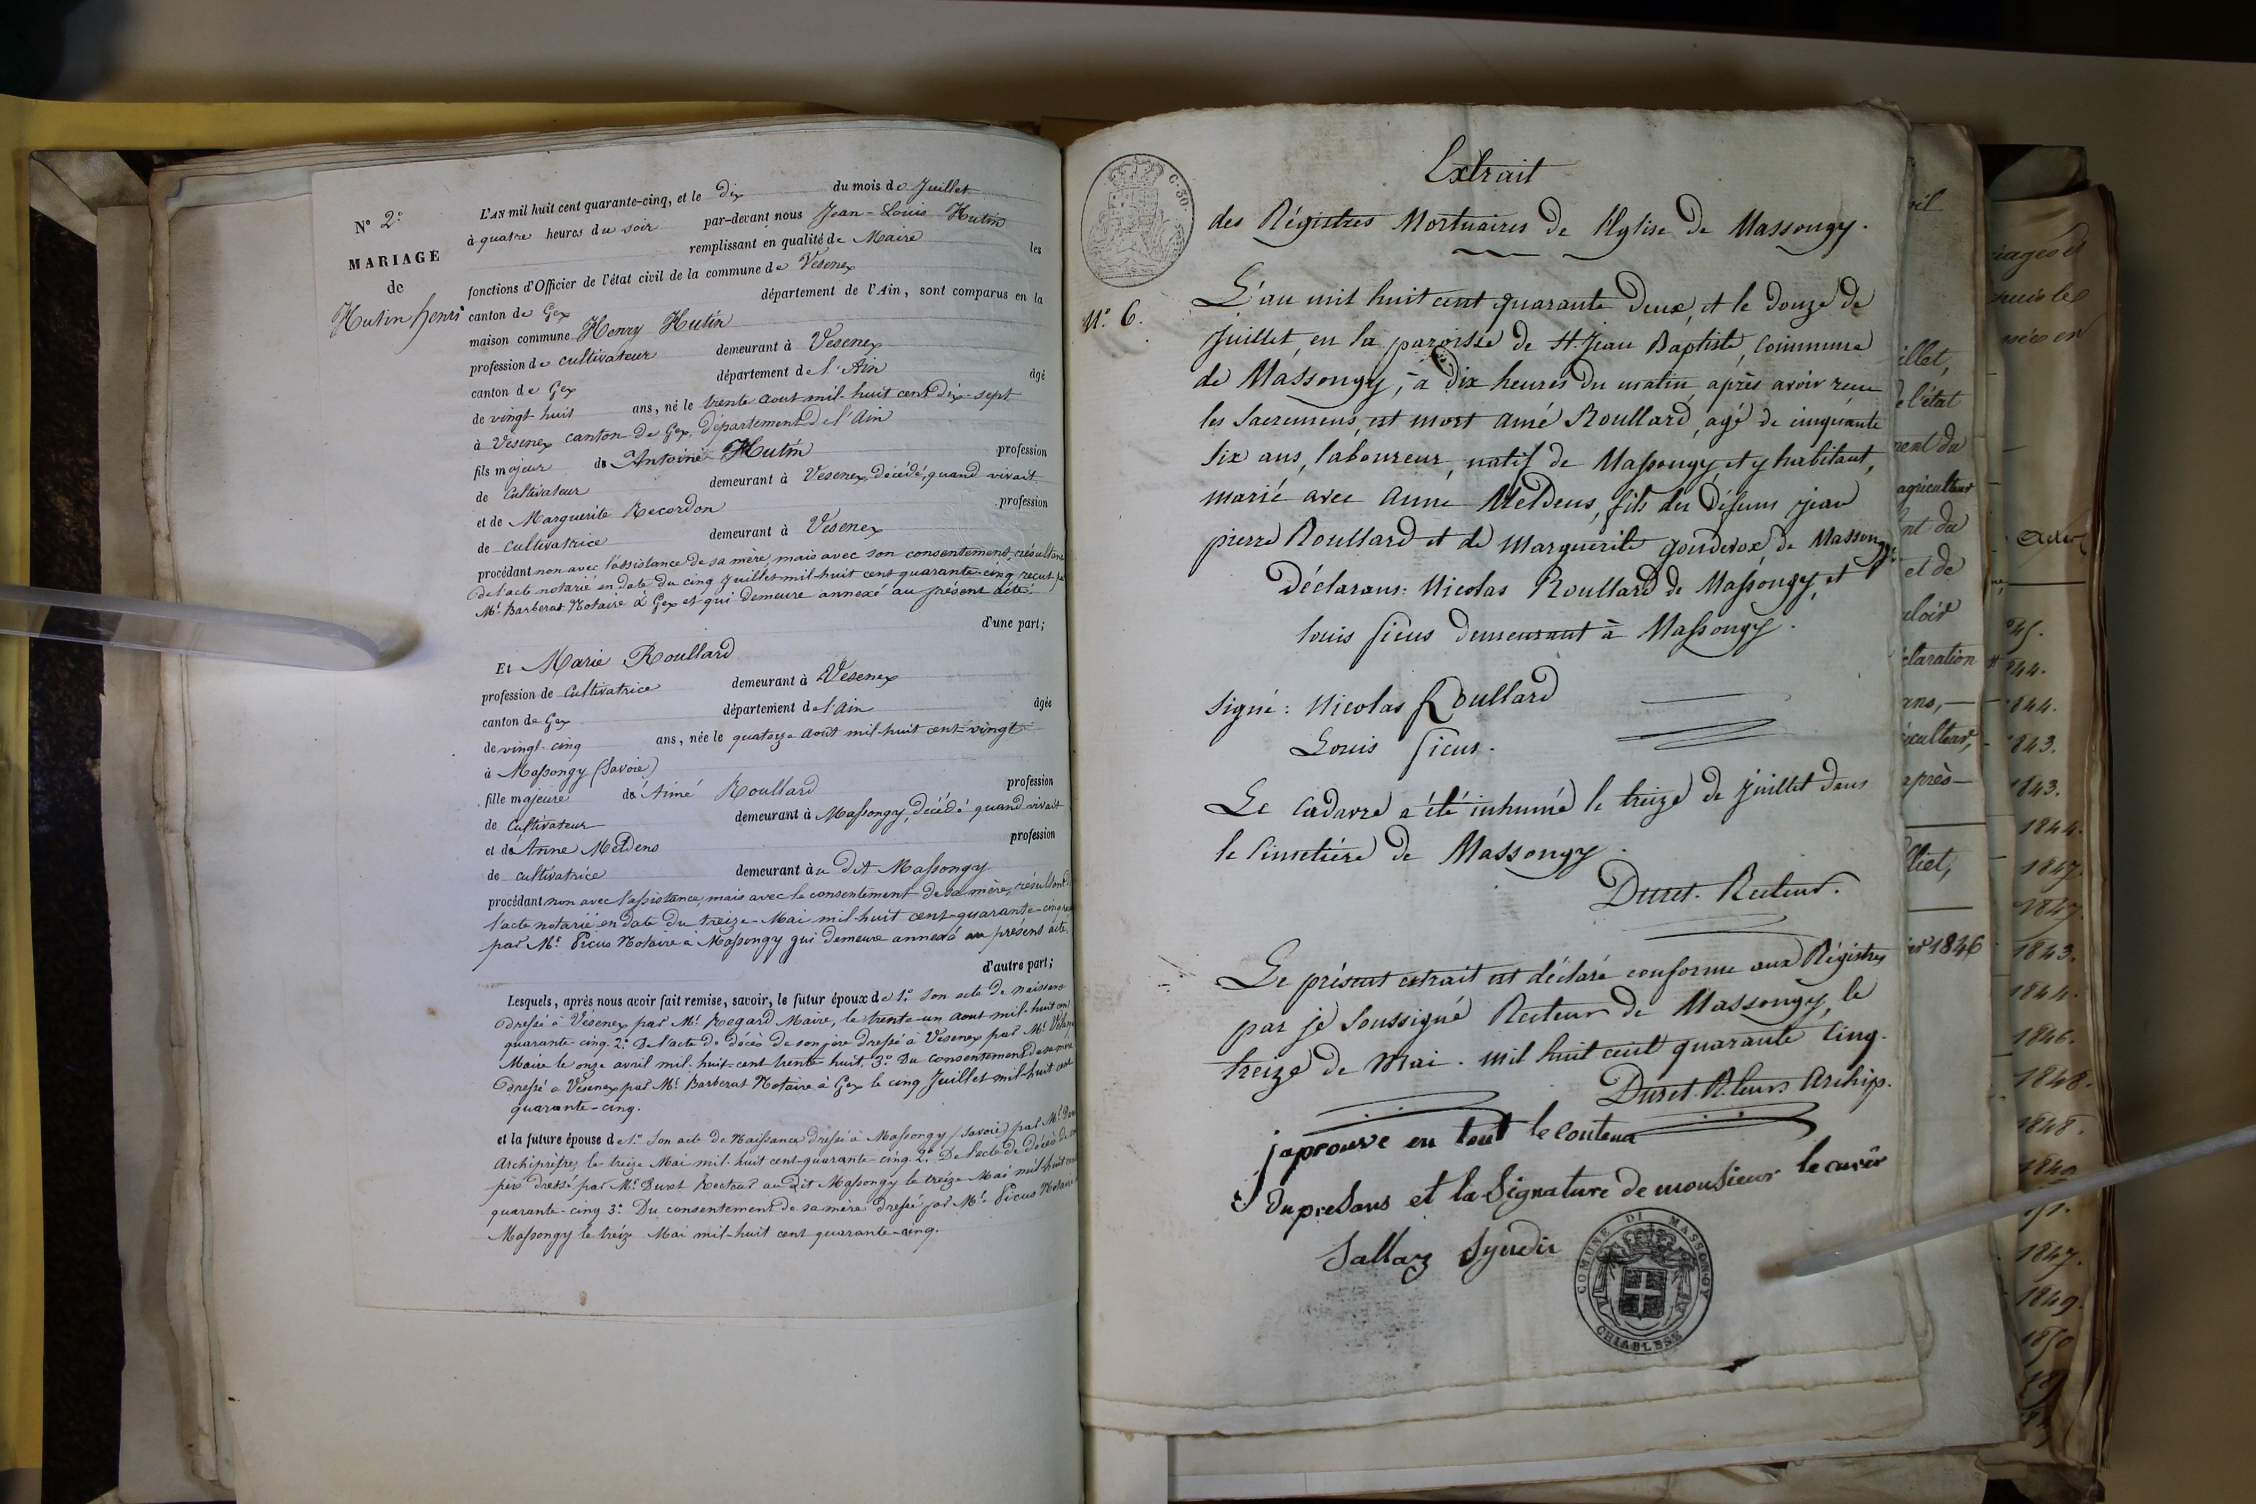 N° 2.e
MARIAGE
de
Hutin henri
L'AN mil huit cent quarante-cinq, et le dix du mois de Juillet
à quatre heures du soir par-devant nous Jean-Louis Hutin
remplissant en qualité de Maire les
fonctions d'Officier de l'état civil de la commune de Vesenex
canton de Gex département de l'Ain, sont comparus en la
maison commune Henry Hutin
profession de cultivateur demeurant à Vesenex
canton de Gex département de l'Ain âgé
de vingt huit ans, né le trente aout mil-huit cent dix-sept
à Vesenex canton de Gex, département de l'Ain
fils majeur de Antoine Hutin profession
de cultivateur demeurant à Vesenex, décédé, quand vivait
et de Marguerite Recordon profession
de cultivatrice demeurant à Vesenex
procédant non avec l'assistance de sa mère, mais avec son consentement, résultant
de l'acte notarié en date du cinq Juillet mil-huit cent quarante-cinq recut
Mr. Barberat Notaire à Gex et qui demeure annexé au présent acte.
d'une part;
Et Marie Roullard
profession de cultivatrice demeurant à Vesenex
canton de Gex département de l'Ain âgée
de vingt-cinq ans, née le quatorze aout mil-huit cent-vingt
à Massongy (Savoie)
fille majeure de Aimé Roullard profession
de cultivateur demeurant à Massongy, décédé quand vivait
et de Anne Meldens profession
de cultivatrice demeurant à u dit Massongy
procédant non avec l'assistance, mais avec le consentement de sa mère, résultant
l'acte notarié en date du treize-Mai mil-huit cent-quarante-cinq
par Mr. Ficus Notaire à Massongy qui demeure annexé au présent acte.
d'autre part;
Lesquels, après nous avoir fait remise, savoir, le futur époux de 1.° Son acte de naissance
dressé à Vésenex par Mr. Regard Maire, le trente-un aout mil-huit cent
quarante-cinq. 2.° De l'acte de décès de son père dressé à Vesenex par Mr.
Maire le onze avril mil-huit-cent trente huit. 3.° Du consentement de sa mère
dressé à Vésenex par Mr. Barberat Notaire à Gex le cinq Juillet mil-huit cent
quarante-cinq.
et la future épouse de 1.° Son acte de Naissance dressé à Massongy (Savoie) par Mr.
Archiprêtre, le treize Mai mil-huit cent-quarante-cinq 2.° De l'acte de décès de
père dressé par Mr. Duret Recteur au dit Massongy le treize Mai mil-huit cent
quarante-cinq 3.° Du consentement de sa mère dressé par Mr. Ficus Notaire
Massongy le treize Mai mil-huit cent quarante-cinq.
C. 30.
Extrait
des Régistres Mortuaires de l'Eglise de Massongy.
N.° 6.
L'an mil huit cent quarante deux, et le douze de
Juillet, en la paroisse de St. Jean Baptiste, commune
de Massongy, à dix heures du matin après avoir recu
les Sacremens, est mort Amé Roullard, agé de cinquante
six ans, laboureur, natif de Massongy, et y habitant,
marié avec Anne Meldens, fils des défuns jean
pierre Roullard et de Marguerite gouderox, de Massongy.
Déclarans: Nicolas Roullard de Massongy, et
louis ficus demeurant à Massongy.
Signé: Nicolas Roullard
Louis ficus.
Le cadavre a été inhumé le treize de juillet dans
le Cimetière de Massongy.
Duret. Recteur.
Le présent extrait est déclaré conforme aux Régistres
par je soussigné Recteur de Massongy, le
treize de Mai. mil huit cent quarante cinq.
Duret. R.teur. Archip.
japrouve en tout le contenu
du presans et la Signature de monsieur le curér
Sallaz Syndic
COMUNE DI MASSONGY
CHIABLESE
illet,
l'état
ent du
agriculteur
et de
claration
ans,
après
1846
1844.
1843.
1843.
1844.
1847.
1847.
1843.
1844.
1846.
1848.
1848.
1847.
1849.
1850